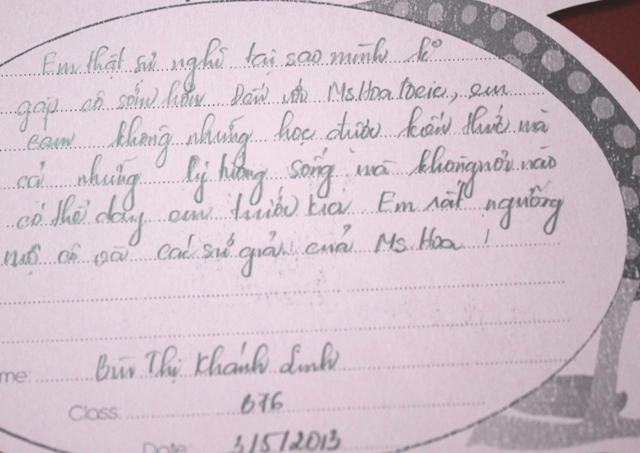 Em thật sự nghĩ tại sao mình ko
gặp cô sớm hơn. Đến với Ms Hoa Toeic, em
không những học được kiến thức mà
cả những lý tưởng sống mà không nơi nào
có thể dạy em trước kia. Em rất ngưỡng
mộ cô và các sứ giả của Ms Hoa !
me: Bùi Thị Khánh Linh
Class: 676
Date: 3/5/2013